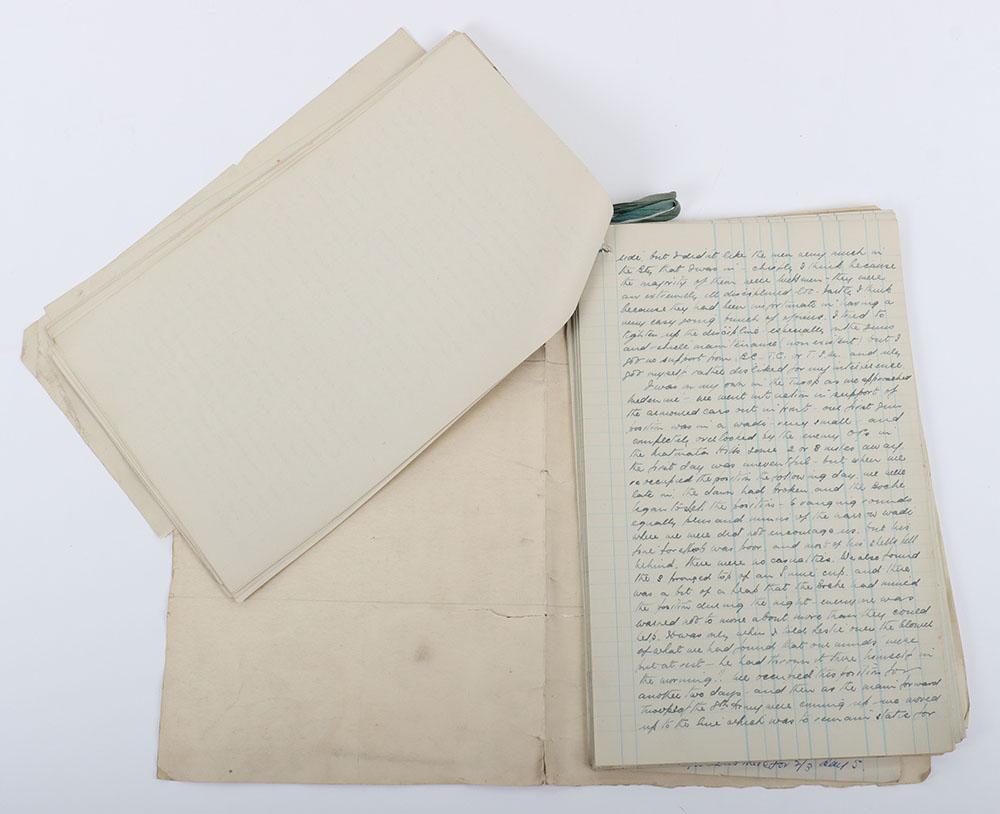 side but I didn't like the men very much in
the Bty that I was in - chiefly I think because
the majority of them were Welshmen - they were
an extremely ill disciplined lot - partly I think
because they had been unfortunate in having a
very easy going bunch of officers. I tried to
tighten up the discipline especially in the guns
and vehicle maintenance (non existent) but I
got no support from B.C. - T.C. or T.S.M. and only
got myself rather disliked for my interference.
I was on my own in the Troop as we approached
Medenine - we went into action in support of
the armoured cars out in front - our first gun
position was in a wadi - very small and
completely overlooked by the enemy OPs in
the Matmata Hills some 2 or 3 miles away
the first day was uneventful - but when we
reoccupied the position the following day, we were
late in, the dawn had broken and the Boche
began to the position - 6 ranging rounds
equally plus and minus of the narrow wadi
where we were did not encourage us. But his
fire for effect was poor and most of his shells fell
behind, there were no casualties. We also found
the 3 pronged top of an S mine cup, and there
was a bit of a flap that the Boche had mined
the position during the night - everyone was
warned not to move about more than they could
help. It was only when I told Leslie over the blower
of what we had found that our minds were
put at rest - he had thrown it there himself in
the morning! We occupied this position for
another two days and then as the main forward
troops of the 8th Army were coming up - we moved
up to the line which was to remain static for
for 2/3 days.